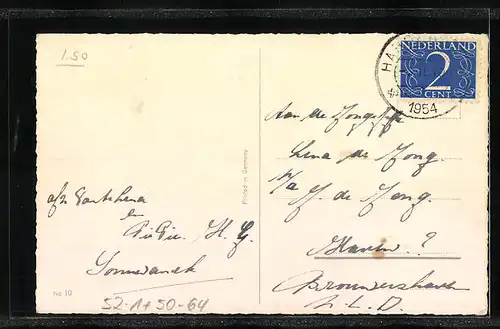 1.50
NEDERLAND
2
CENT
HA
1954
Aan de Jongejuffr
Lena de Jong.
p/a J. de Jong.
Haven ?
Brouwershaven
Z. L. D.
afz Tante Lena
en
H. G.
Sonnevanck
Printed in Germany
No 10
52-1+50-64